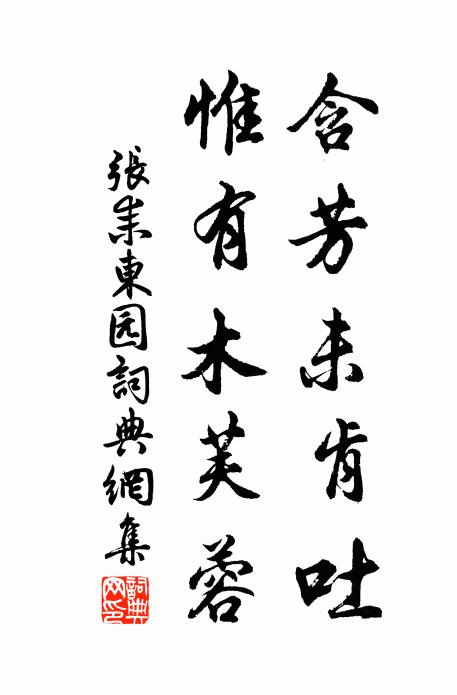 含芳未肯吐
惟有木芙蓉
張耒東园詞典網集
詞典网印